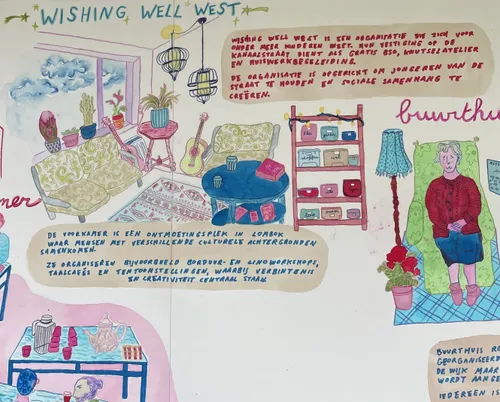 WISHING WELL WEST
WISHING WELL WEST IS EEN ORGANISATIE DIE ZICH VOOR
ONDER MEER KINDEREN INZET. HUN VESTIGING OP DE
KANAALSTRAAT DIENT ALS GRATIS BSO, KNUTSELATELIER
EN HUISWERKBEGELEIDING.
DE ORGANISATIE IS OPGERICHT OM JONGEREN VAN DE
STRAAT TE HOUDEN EN SOCIALE SAMENHANG TE
CREËREN.
buurthu
mer
DE VOORKAMER IS EEN ONTMOETINGSPLEK IN LOMBOK
WAAR MENSEN MET VERSCHILLENDE CULTURELE ACHTERGRONDEN
SAMENKOMEN.
ZE ORGANISEREN BIJVOORBEELD BORDUUR- EN LINOWORKSHOPS,
TAALCAFÉS EN TENTOONSTELLINGEN, WAARBIJ VERBINTENIS
EN CREATIVITEIT CENTRAAL STAAN.
BUURTHUIS RO
GEORGANISEERD
DE WIJK MAAR
WORDT AANGE
IEDEREEN IS